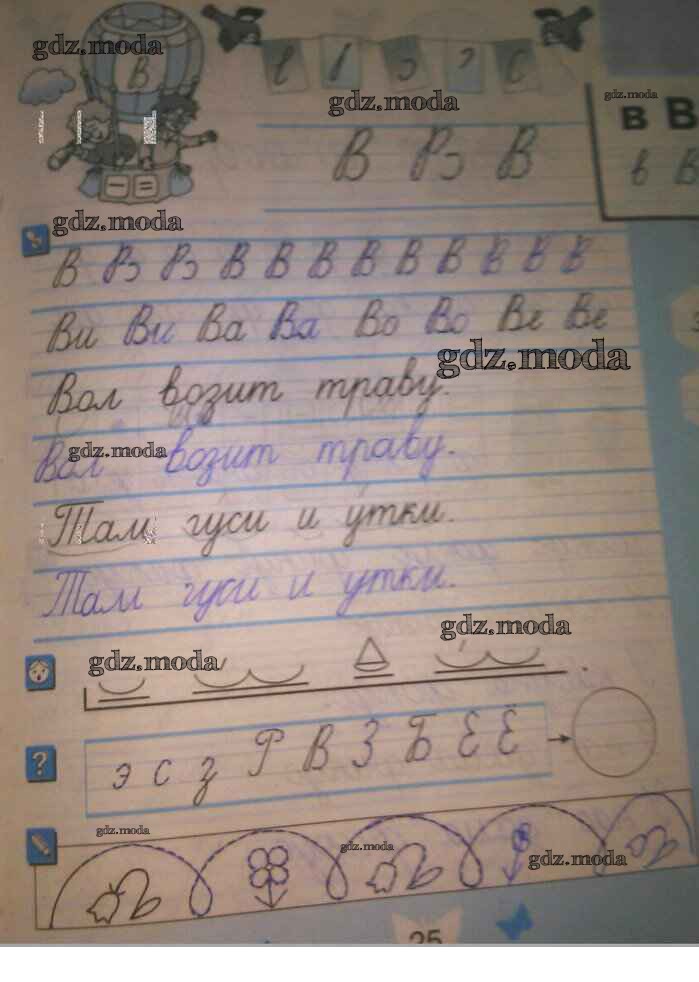 gdz.moda
В
gdz.moda
gdz.moda
в В
В Рэ В
в В
gdz.moda
В Рэ Рэ В В В В В В В В В
Ви Ви Ва Ва Во Во Ве Ве
gdz.moda
Вол возит траву.
gdz.moda
Вол возит траву.
Там гуси и утки.
Там гуси и утки.
gdz.moda
gdz.moda
?
э с з Р В З Б Е Ё
gdz.moda
gdz.moda
gdz.moda
25